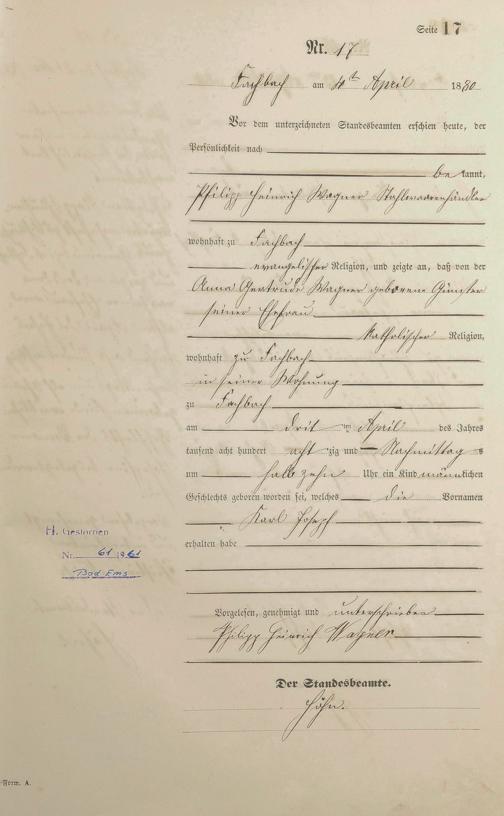 Seite 17
Nr. 17
Fachbach am 10ten April 1880
Vor dem unterzeichneten Standesbeamten erschien heute, der
Persönlichkeit nach
be kannt,
Philipp Heinrich Wagner Stahlwaarenhändler
wohnhaft zu Fachbach
evangelischer Religion, und zeigte an, daß von der
Anna Gertrude Wagner geborene Günster
seiner Ehefrau
katholischer Religion,
wohnhaft zu Fachbach
in seiner Wohnung
zu Fachbach
am drit ten April des Jahres
tausend acht hundert acht zig und Nachmittag s
um halb zehn Uhr ein Kind männlichen
Geschlechts geboren worden sei, welches die Vornamen
Karl Joseph
erhalten habe
H. Gestorben
Nr. 61 1961
Bad Ems
Vorgelesen, genehmigt und unterschrieben
Philipp Heinrich Wagner
Der Standesbeamte.
Höhn.
Form. A.